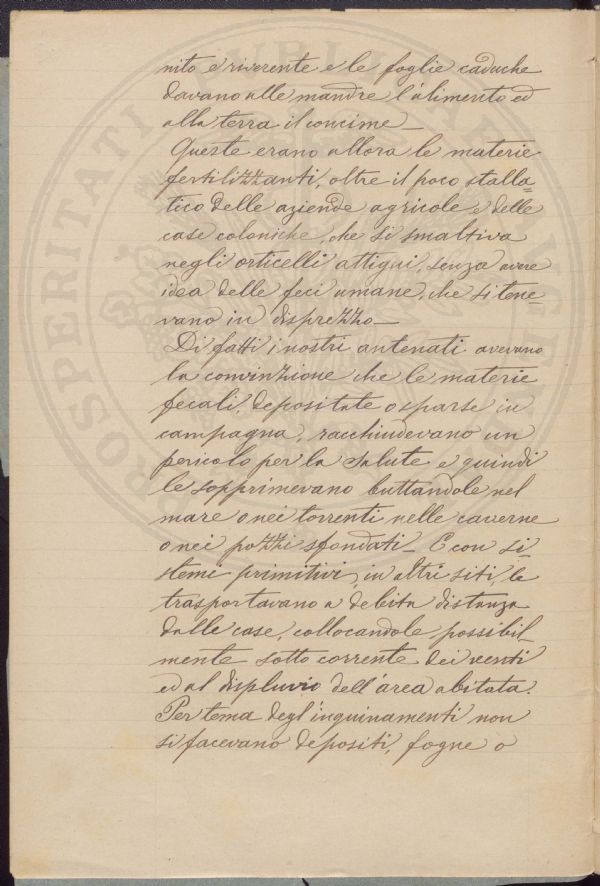 nito e riverente e le foglie caduche
davano alle mandre l'alimento ed
alla terra il concime_
Queste erano allora le materie
fertilizzanti, oltre il poco stalla=
tico delle aziende agricole e delle
case coloniche, che si smaltiva
negli orticelli attigui, senza avere
idea delle feci umane, che si tene=
vano in disprezzo_
Di fatti i nostri antenati avevano
la convinzione che le materie
fecali, depositate o sparse in
campagna, racchiudevano un
pericolo per la salute e quindi
le sopprimevano buttandole nel
mare o nei torrenti nelle caverne
o nei pozzi sfondati_ E con si=
stemi primitivi, in altri siti, le
trasportavano a debita distanza
dalle case, collocandole possibil=
mente sotto corrente dei venti
ed al displuvio dell'area abitata.
Per tema degl'inquinamenti non
si facevano depositi, fogne o
PROSPERITATI PUBLICAE AVGE